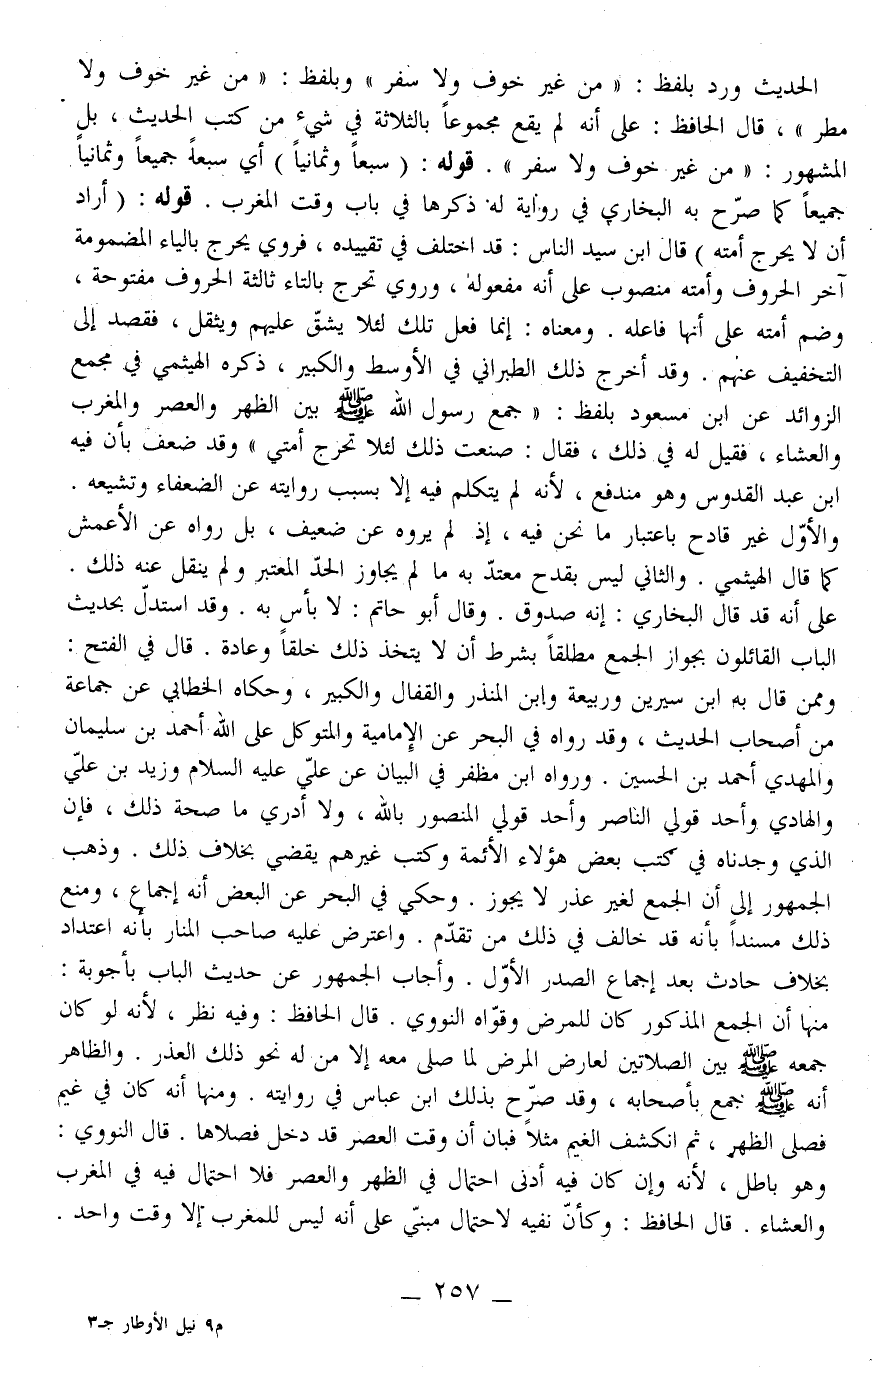 الحديث ورد بلفظ : « من غير خوف ولا سفر » وبلفظ : « من غير خوف ولا
مطر » ، قال الحافظ : على أنه لم يقع مجموعاً بالثلاثة في شيء من كتب الحديث ، بل
المشهور : « من غير خوف ولا سفر » . قوله : ( سبعاً وثمانياً ) أي سبعاً جميعاً وثمانياً
جميعاً كما صرّح به البخاري في رواية له ذكرها في باب وقت المغرب . قوله : ( أراد
أن لا يحرج أمته ) قال ابن سيد الناس : قد اختلف في تقييده ، فروي يحرج بالياء المضمومة
آخر الحروف وأمته منصوب على أنه مفعوله ، وروي تحرج بالتاء ثالثة الحروف مفتوحة ،
وضم أمته على أنها فاعله . ومعناه : إنما فعل تلك لئلا يشقّ عليهم ويثقل ، فقصد إلى
التخفيف عنهم . وقد أخرج ذلك الطبراني في الأوسط والكبير ، ذكره الهيثمي في مجمع
الزوائد عن ابن مسعود بلفظ : « جمع رسول الله ﷺ بين الظهر والعصر والمغرب
والعشاء ، فقيل له في ذلك ، فقال : صنعت ذلك لئلا تحرج أمتي » وقد ضعف بأن فيه
ابن عبد القدوس وهو مندفع ، لأنه لم يتكلم فيه إلا بسبب روايته عن الضعفاء وتشيعه .
والأوّل غير قادح باعتبار ما نحن فيه ، إذ لم يروه عن ضعيف ، بل رواه عن الأعمش
كما قال الهيثمي . والثاني ليس بقدح معتدّ به ما لم يجاوز الحدّ المعتبر ولم ينقل عنه ذلك .
على أنه قد قال البخاري : إنه صدوق . وقال أبو حاتم : لا بأس به . وقد استدلّ بحديث
الباب القائلون بجواز الجمع مطلقاً بشرط أن لا يتخذ ذلك خلقاً وعادة . قال في الفتح :
وممن قال به ابن سيرين وربيعة وابن المنذر والقفال والكبير ، وحكاه الخطابي عن جماعة
من أصحاب الحديث ، وقد رواه في البحر عن الإمامية والمتوكل على الله أحمد بن سليمان
والمهدي أحمد بن الحسين . ورواه ابن مظفر في البيان عن عليّ عليه السلام وزيد بن عليّ
والهادي وأحد قولي الناصر وأحد قولي المنصور بالله ، ولا أدري ما صحة ذلك ، فإن
الذي وجدناه في كتب بعض هؤلاء الأئمة وكتب غيرهم يقضي بخلاف ذلك . وذهب
الجمهور إلى أن الجمع لغير عذر لا يجوز . وحكي في البحر عن البعض أنه إجماع ، ومنع
ذلك مسنداً بأنه قد خالف في ذلك من تقدّم . واعترض عليه صاحب المنار بأنه اعتداد
بخلاف حادث بعد إجماع الصدر الأوّل . وأجاب الجمهور عن حديث الباب بأجوبة :
منها أن الجمع المذكور كان للمرض وقوّاه النووي . قال الحافظ : وفيه نظر ، لأنه لو كان
جمعه ﷺ بين الصلاتين لعارض المرض لما صلى معه إلا من له نحو ذلك العذر . والظاهر
أنه ﷺ جمع بأصحابه ، وقد صرّح بذلك ابن عباس في روايته . ومنها أنه كان في غيم
فصلى الظهر ، ثم انكشف الغيم مثلاً فبان أن وقت العصر قد دخل فصلاها . قال النووي :
وهو باطل ، لأنه وإن كان فيه أدنى احتمال في الظهر والعصر فلا احتمال فيه في المغرب
والعشاء . قال الحافظ : وكأنّ نفيه لاحتمال مبنيّ على أنه ليس للمغرب إلا وقت واحد .
– ٢٥٧ –
م٩ نيل الأوطار جـ٣